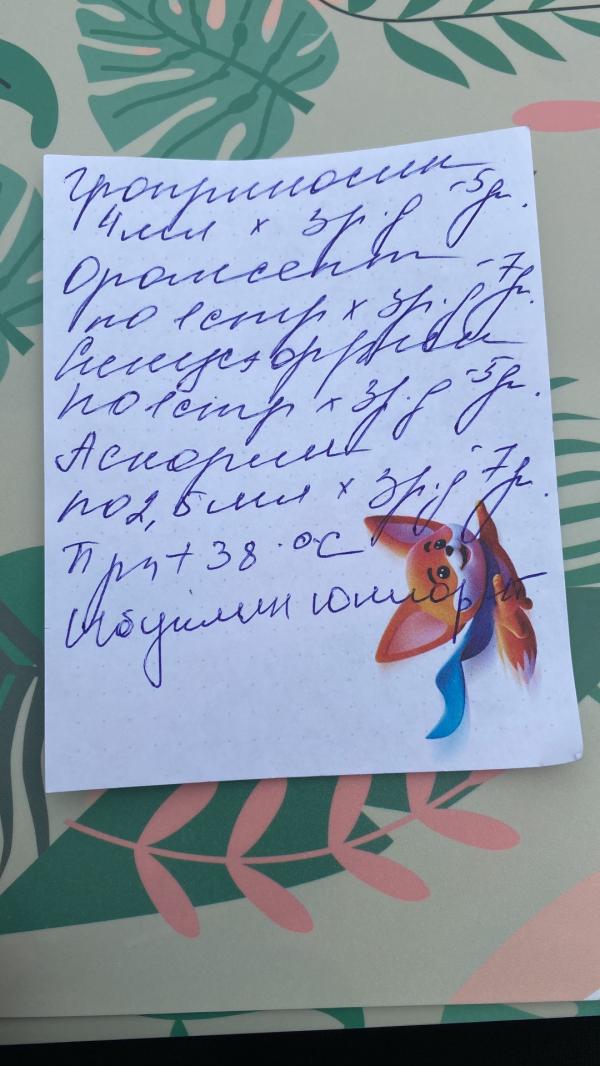 Гроприносин
4мл х 3р.д -5д.
Оромсепт
по 1стр х 3р.д -7д.
по 1стр х 3р.д -5д.
Аскорил
по 2,5мл х 3р.д -7д.
При t 38.°С
Ибуилин юниор